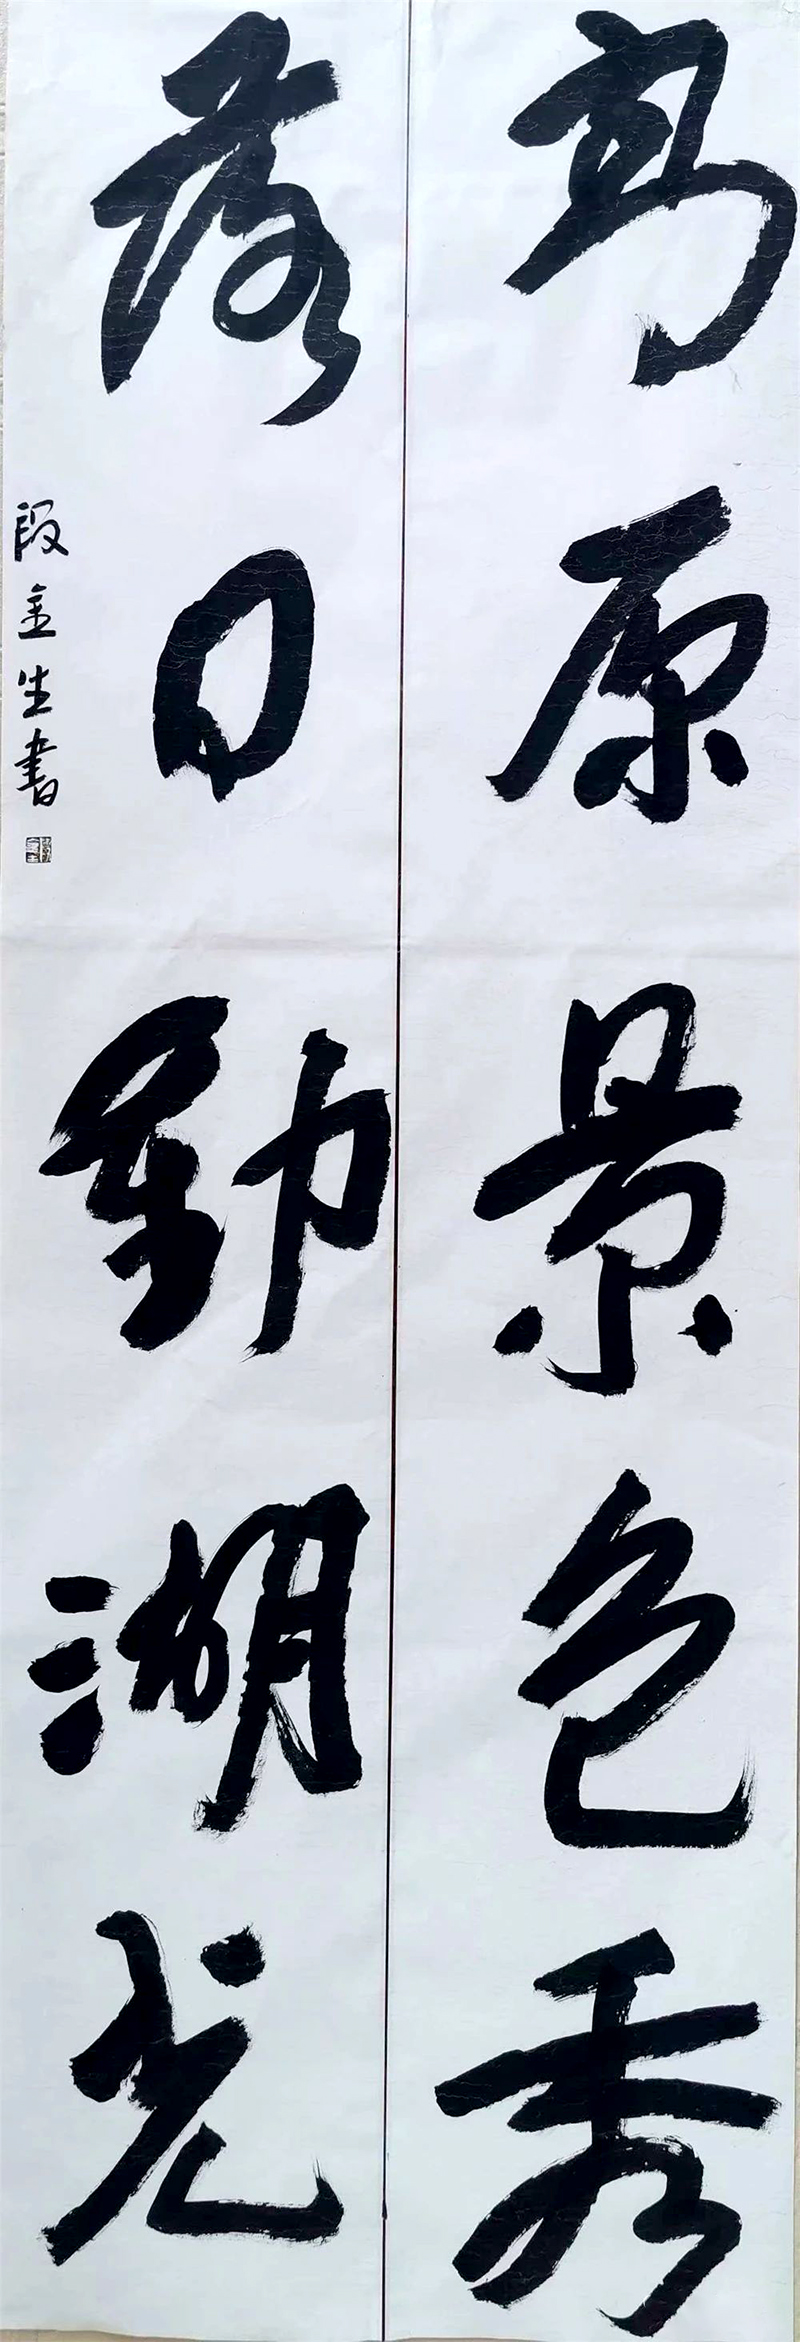 高原景色秀
落日動湖光
段金生書